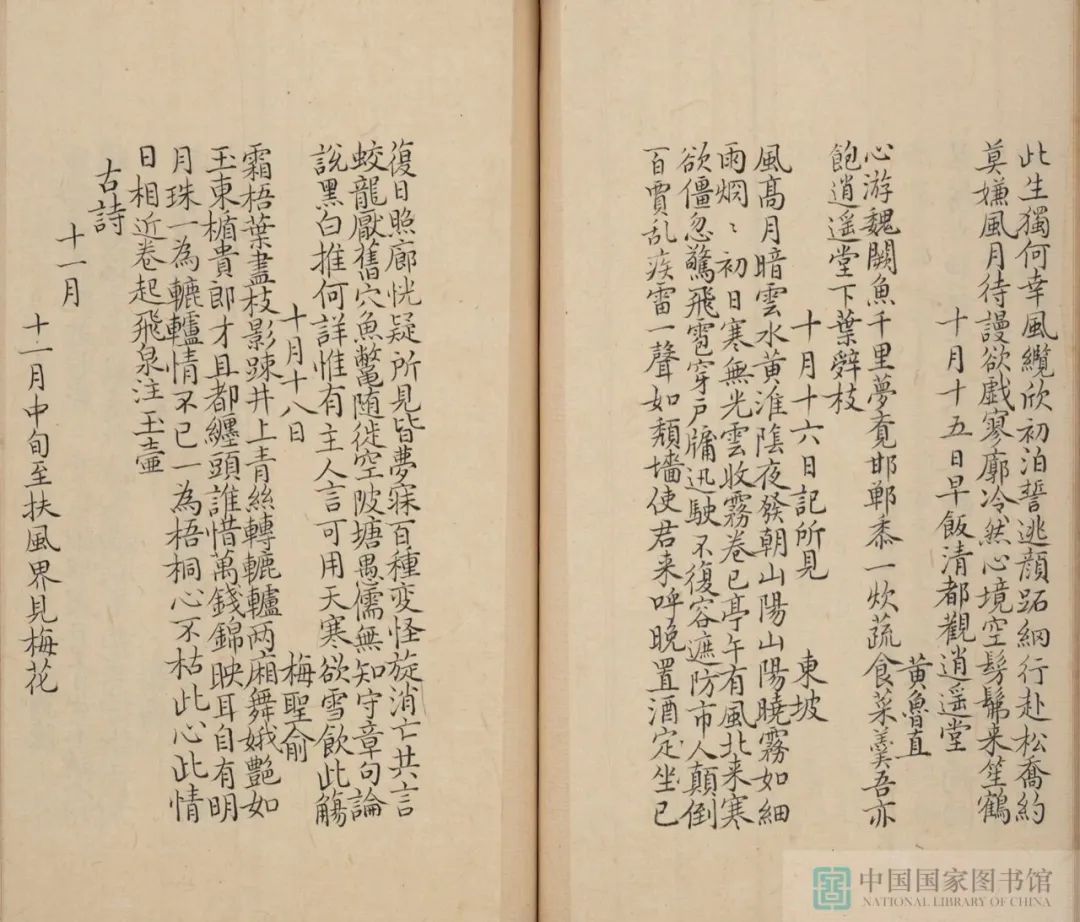 此生獨何幸風纜欣初泊誓逃顔跖網行赴松喬約
莫嫌風月待謾欲戲寥廓冷然心境空髣髴来笙鶴
十月十五日早飯清都觀逍遥堂
黄魯直
心游魏闕魚千里夢覔邯郸黍一炊蔬食菜羹吾亦
飽逍遥堂下葉辤枝
十月十六日記所見
東坡
風髙月暗雲水黄淮陰夜發朝山陽山陽曉霧如細
雨烱〻初日寒無光雲收霧卷已亭午有風北来寒
欲僵忽驚飛雹穿戸牖迅駛不復容遮防市人顛倒
百賈乱疾雷一聲如頽墻使君来呼晚置酒定坐已
復日照廊恍疑所見皆夢寐百種変怪旋消亡共言
蛟龍厭舊穴魚鱉随徙空陂塘愚儒無知守章句論
說黑白推何詳惟有主人言可用天寒欲雪飲此觴
十月十八日
梅聖俞
霜梧葉盡枝影踈井上青絲轉轆轤两廂舞娥艷如
玉東楯貴郎才且都纏頭誰惜萬錢錦映耳自有明
月珠一為轆轤情不已一為梧桐心不枯此心此情
日相近卷起飛泉注玉壷
古詩
十一月
十一月中旬至扶風界見梅花
中国国家图书馆
NATIONAL LIBRARY OF CHINA